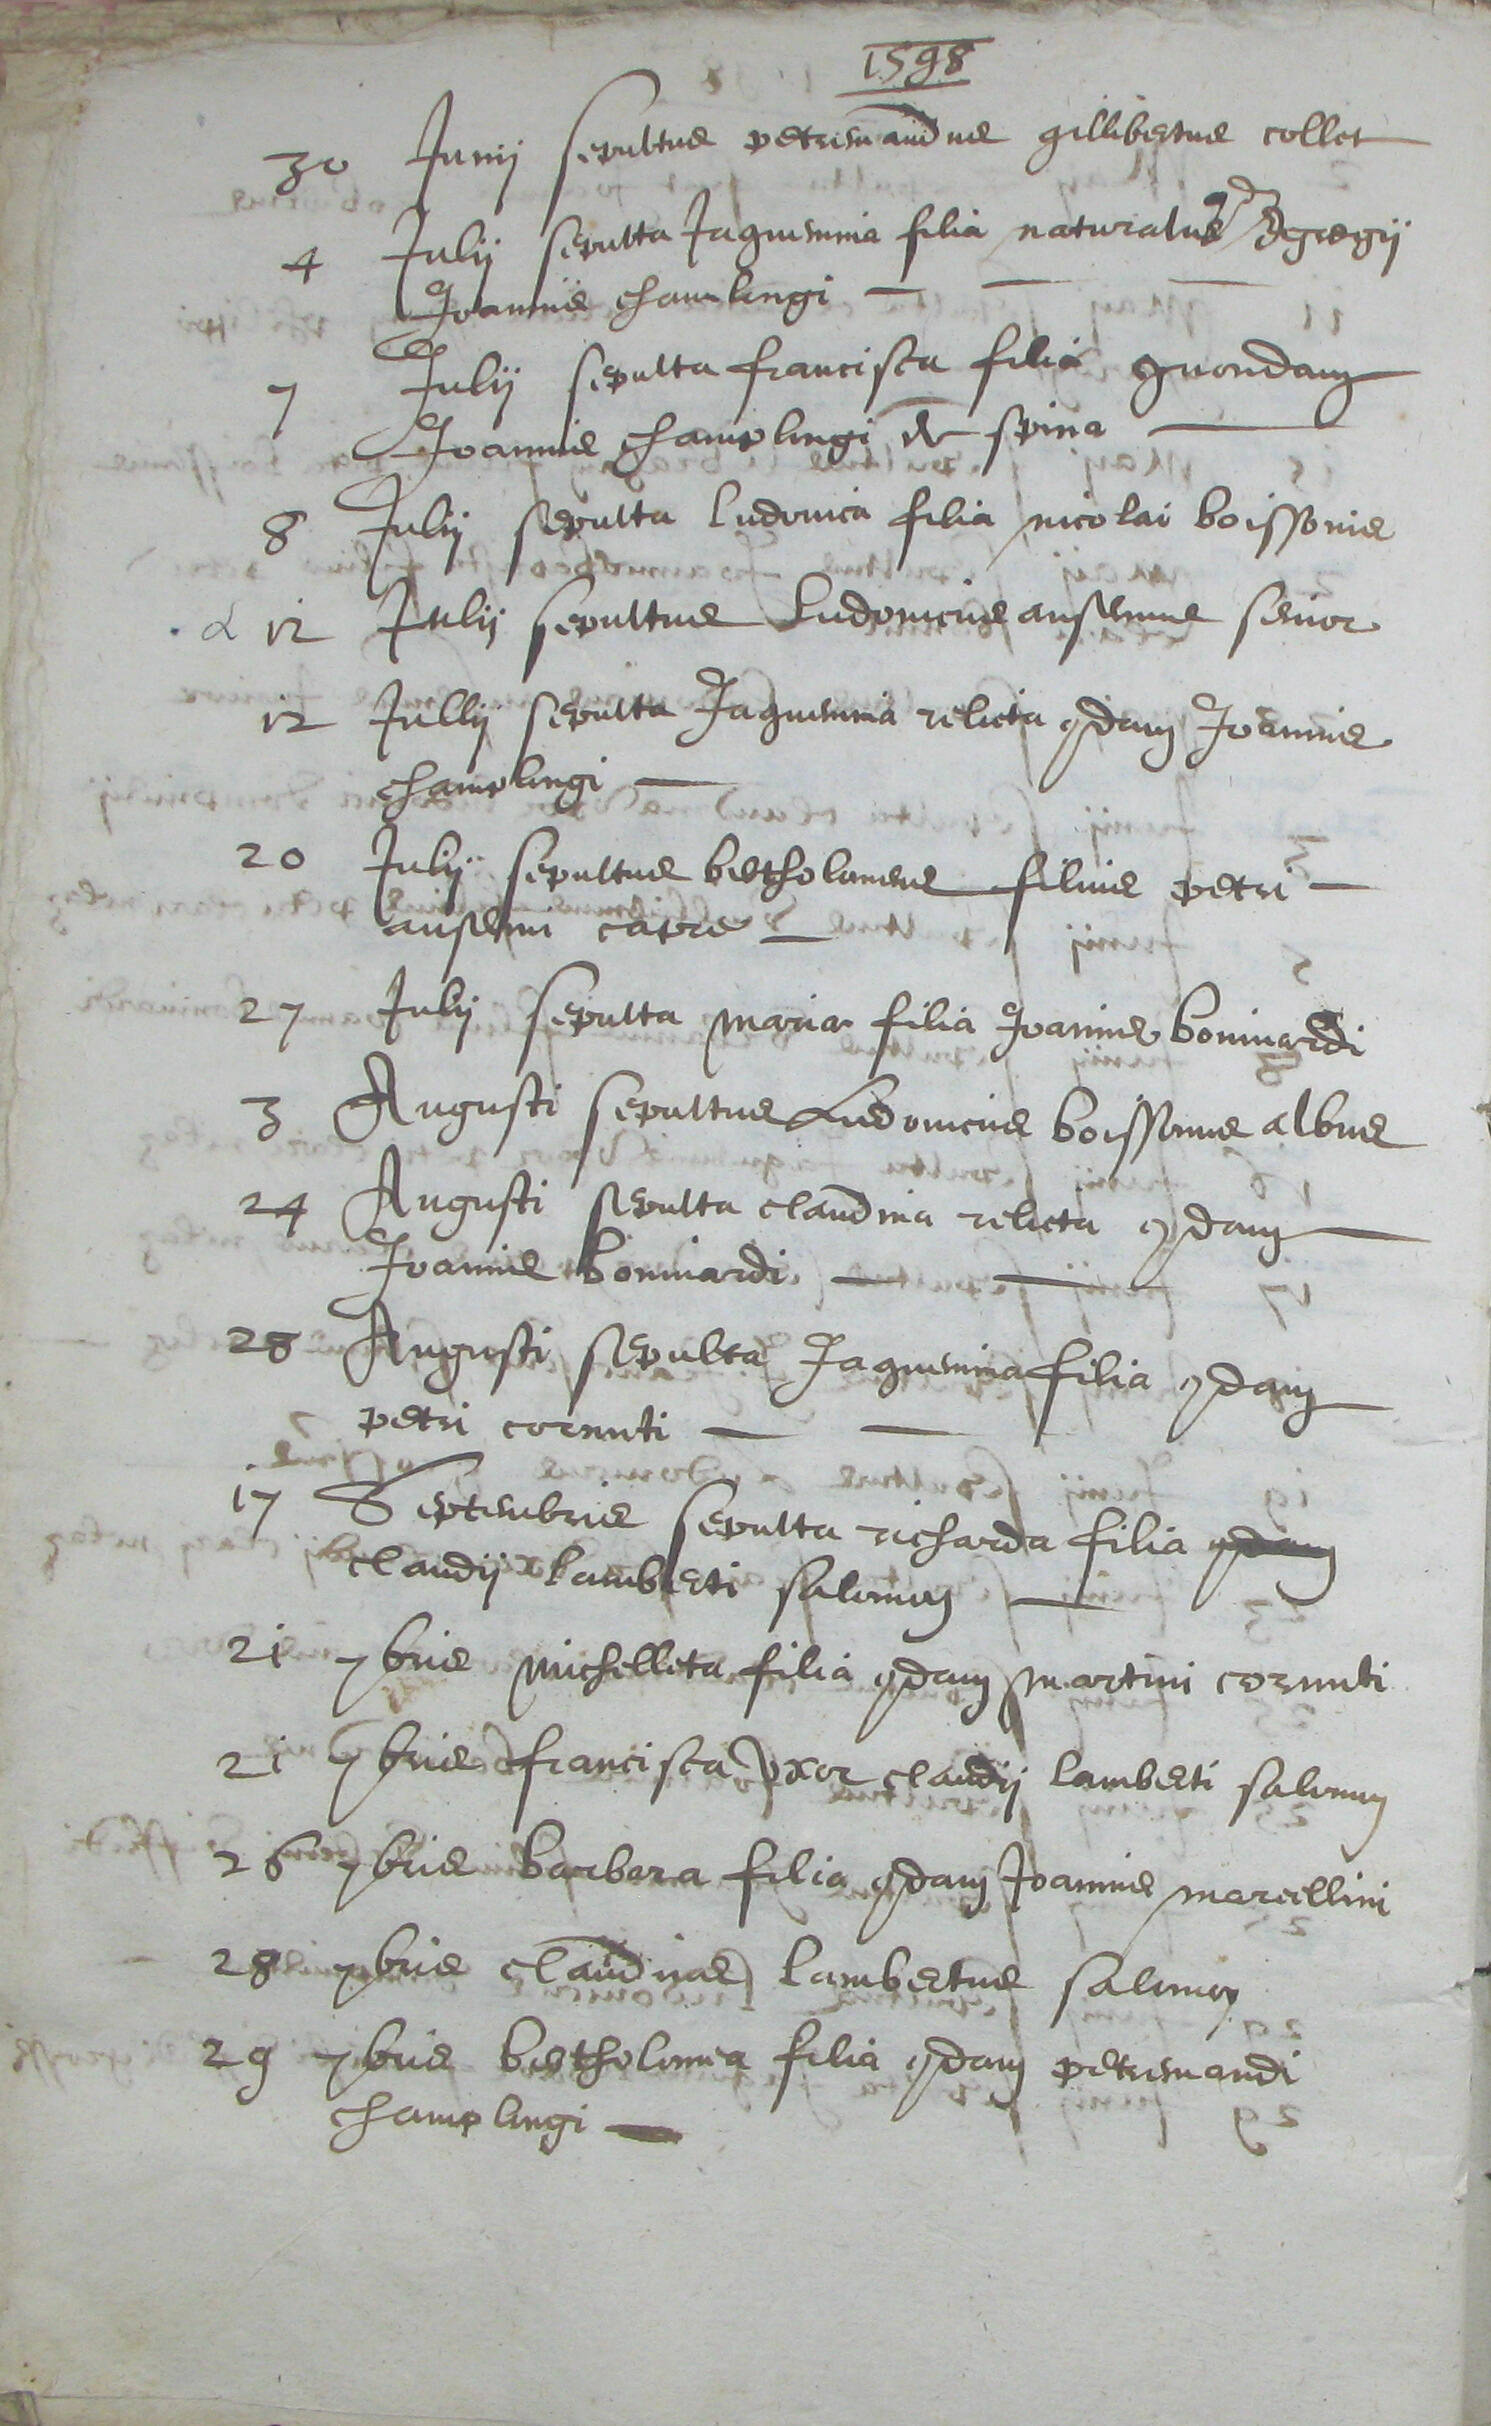 1598
30 Junij sepultus petremandus gillibertus collet
4 Julij sepulta Jaquemina filia naturalis qd egregij
Joannis champlengi
7 Julij sepulta francisca filia quondam
Joannis champlengi de spina
8 Julij sepulta ludovica filia nicolai boissonis
12 Julij sepultus Ludovicus anselmus senior
12 Jullij sepulta Jaquemina relicta qdam Joannis
champlengi
20 Julij sepultus bertholomeus filius petri
anselmi capre
27 Julij sepulta maria filia Joannis boniuardi
3 Augusti sepultus Ludovicus boissonus albus
24 Augusti sepulta claudina relicta qdam
Joannis boniuardi
28 Augusti sepulta Jaquemina filia qdam
petri cornuti
17 Septembris sepulta richarda filia qdam
claudij lamberti salomon
21 7bris michelleta filia qdam martini cornuti
21 7bris francisca vxor claudij lamberti salomon
26 7bris barbara filia qdam Joannis marcellini
28 7bris claudius lambertus salomon
29 7bris bertholomea filia qdam petremandi
champlengi